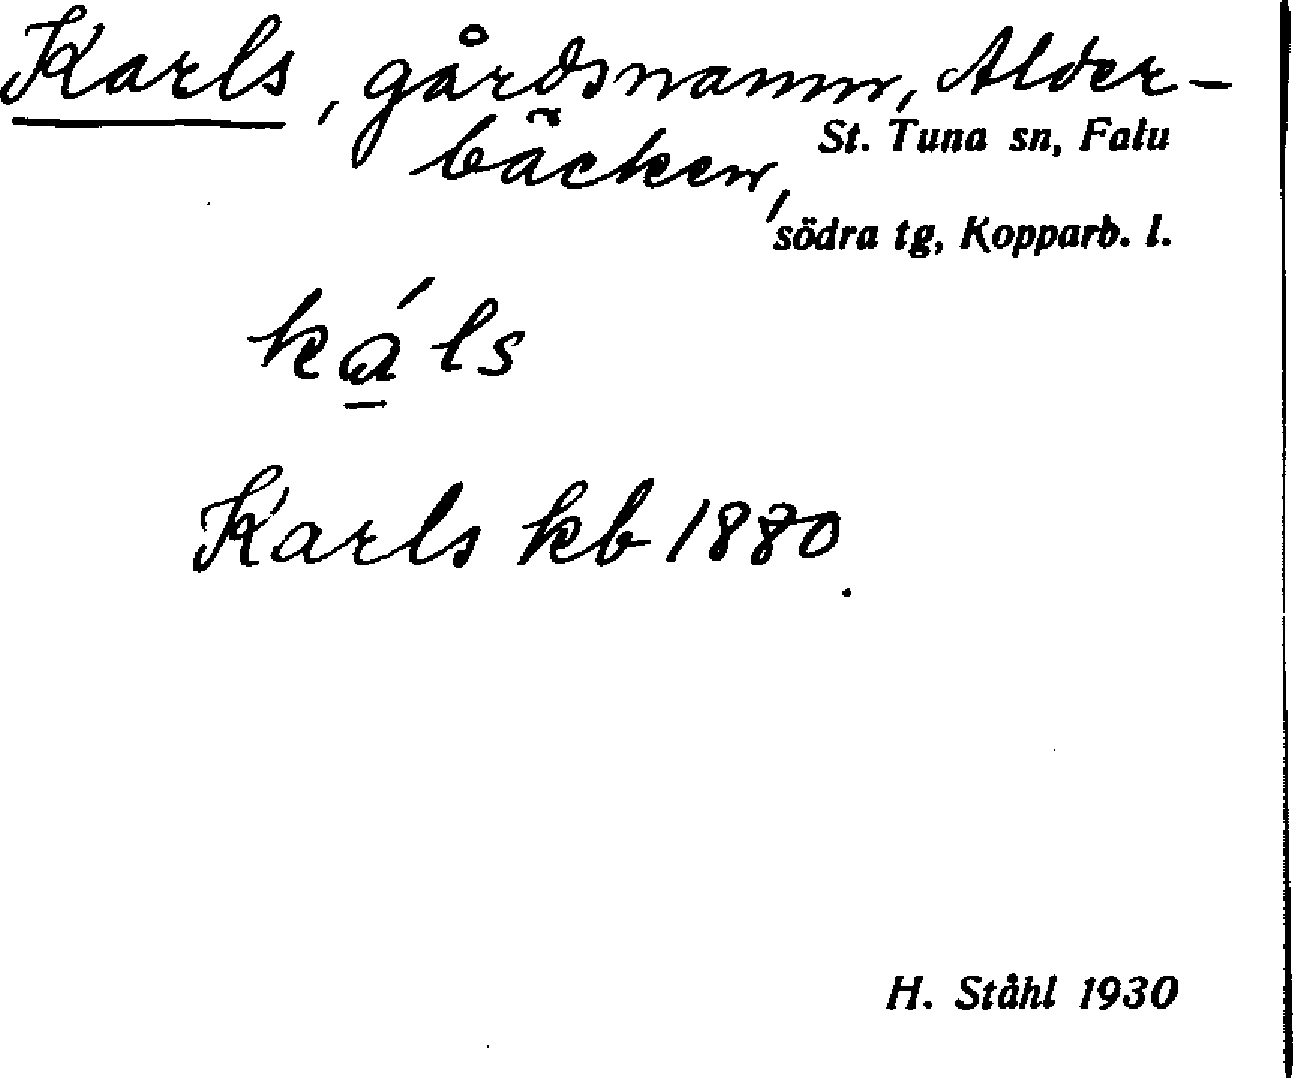 Karls, gårdsnamn, Alder-
bäcken, St. Tuna sn, Falu
södra tg, Kopparb. l.
ká̱ls
Karls kb 1880.
H. Ståhl 1930